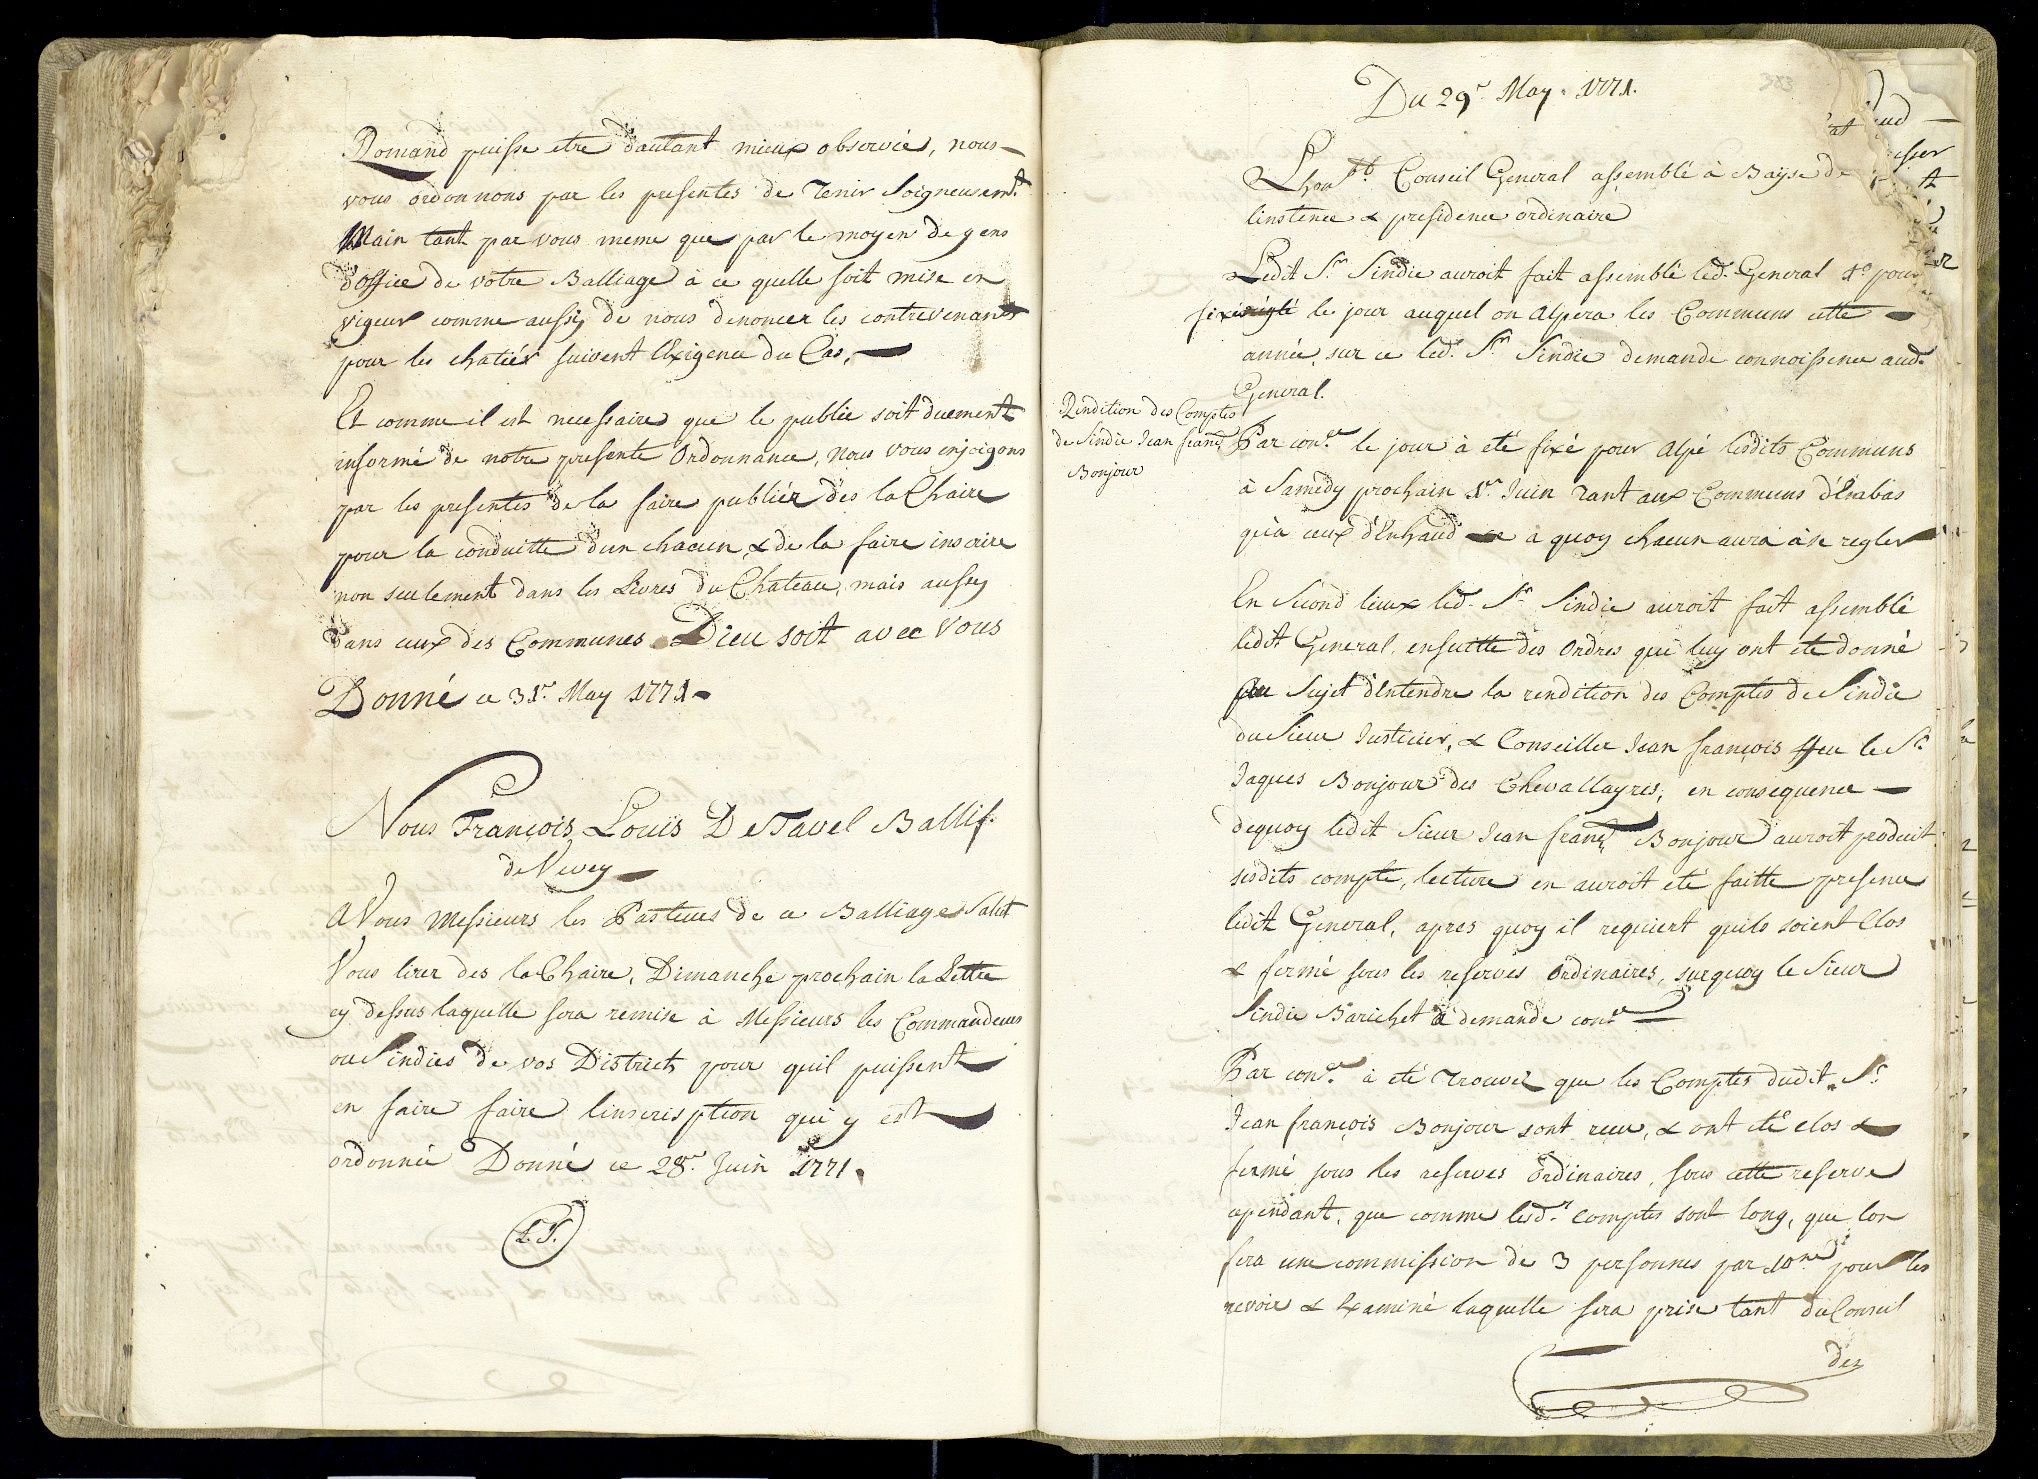 Romand puisse etre d'autant mieux observée, nous
vous ordonnons par les presentes de Tenir Soigneusemt.
Main tant par vous meme que par le moyen de gens
d'Office de votre Balliage à ce quelle soit mise en
vigeur comme aussy de nous denoncer les contrevenants
pour les chatiér suivent l'Exigence du Cas.
Et comme il est necessaires que le public soit duement
informé de notre presente Ordonnance, nous vous enjoigons
par les presentes de la faire publiér dès la Chaire
pour la conduitte d'un chacun & de la faire inscrire
non seulement dans les Livres du Chateau, mais aussy
dans ceux des Communes. Dieu soit avec vous
Donné ce 31r. May 1771
Nous François Louïs DeTavel Ballif
de Vevey
A Vous Messieurs les Pasteurs de ce Balliage Salut
Vous lirer des la Chaire, Dimanche prochain la Lettre
cy dessus laquelle sera remise à Messieurs les Commandeurs
ou Sindics de vos Districts pour quil puissent
en faire faire linscrisption qui y est
ordonnée Donné ce 28r. Juin 1771.
L.S.
Du 29r. May. 1771.
Lhonble. Conseil General assemblé à Bayse de
linstence & presidence ordinaire
Ledit Sr. Sindic auroit fait assemblé led. General 1o. pour
fixé réglé le jour auquel on Alpera les Communs cette
année, sur ce led. Sr. Sindic demande connoissence aud.
General.
Rendition des Comptes
de Sindic Jean franç.
Bonjour
Par con.ce le jour à eté fixé pour Alpé lesdits Communs
à Samedy prochain 1r. Juin Tant aux Communs d'Enbas
qu'à ceux d'Enhaud a quoy chacun aura à se regler
En Second lieux led. Sr. Sindic auroit fait assemblé
ledit General ensuitte des Ordres qui luy ont eté donné
au Sujet d'Entendre la rendition des Comptes de Sindic
du Sieur Justicier, & Conseiller Jean françois ffeu le Sr.
Jaques Bonjour des Chevallayres, en consequence
dequoy ledit Sieur Jean franç. Bonjour auroit produit
sesdits compte, lecture en auroit eté faitte presence
ledit General, apres quoy il requiert quils soient Clos
& fermé sous les reserves Ordinaires, surquoy le Sieur
Sindic Barichet à demandé con.ce
Par con.ce à eté Trouvez que les Comptes dudit Sr.
Jean françois Bonjour sont reçu, & ont eté clos &
fermé sous les reserves Ordinaires, sous cette reserve
cependant, que comme lesd.ts comptes sont long, que lon
fera une commission de 3 personnes par 10ne. pour les
revoir & Examiné laquelle sera prise tant du Conseil
des